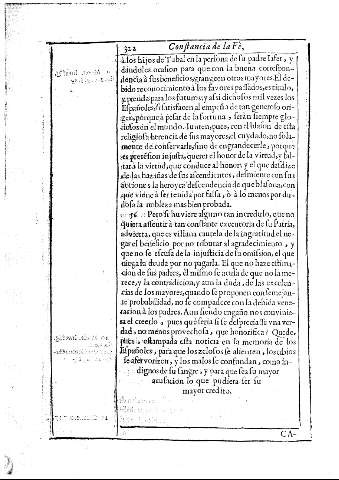 322 Constancia de la Fè,
à los hijos de Tubal en la persona de su padre Iafet, y
dandoles ocasion para que con la buena correspon-
dencia à sus beneficios, grangeen otros mayores. El de-
bido reconocimiento à los favores passados, es titulo,
y prenda para los futuros, y assi dichosos mil vezes los
Españoles, si satisfacen al empeño de tan generoso ori-
gen, porque à pesar de la fortuna, seràn siempre glo-
riosos en el mundo. Sustenten, pues, con el blason de esta
religiosa herencia de sus mayores, el cuydado, no sola-
mente de conservarle, sino de engrandecerle, porque
es pretension injusta, querer el honor de la virtud, y fal-
tar à la virtud, que conduce al honor, y el que desdize
de las hazañas de sus ascendientes, desmiente con sus
acciones la heroyca descendencia de que blasona, con
que viene à ser tenida por falsa, ò à lo menos por du-
dosa la nobleza mas bien probada.
56 Pero si huviere alguno tan incredulo, que no
quiera assentir à tan constante executoria de su Patria,
advierta, que es villana cautela de la ingratitud el ne-
gar el beneficio por no tributar el agradecimiento, y
que no se escusa de la injusticia de la omission, el que
niega la deuda por no pagarla. El que no haze estima-
cion de sus padres, èl mismo se acusa de que no la me-
rece, y la contradicion, y aun la duda, de las excelen-
cias de los mayores, quando se proponen con semejan-
te probabilidad, no se compadece con la debida vene-
racion à los padres. Aun siendo engaño nos movimie-
ra el creerlo, pues què seria si se despreciasse vna ver-
dad, no menos provechosa, que honorifica? Quede,
pues, estampada esta noticia en la memoria de los
Españoles, para que los zelosos se alienten, los tibios
se afervorizen, y los malos se confundan, como in-
dignos de su sangre, y para que sea su mayor
acusacion lo que pudiera ser su
mayor credito.
CA-